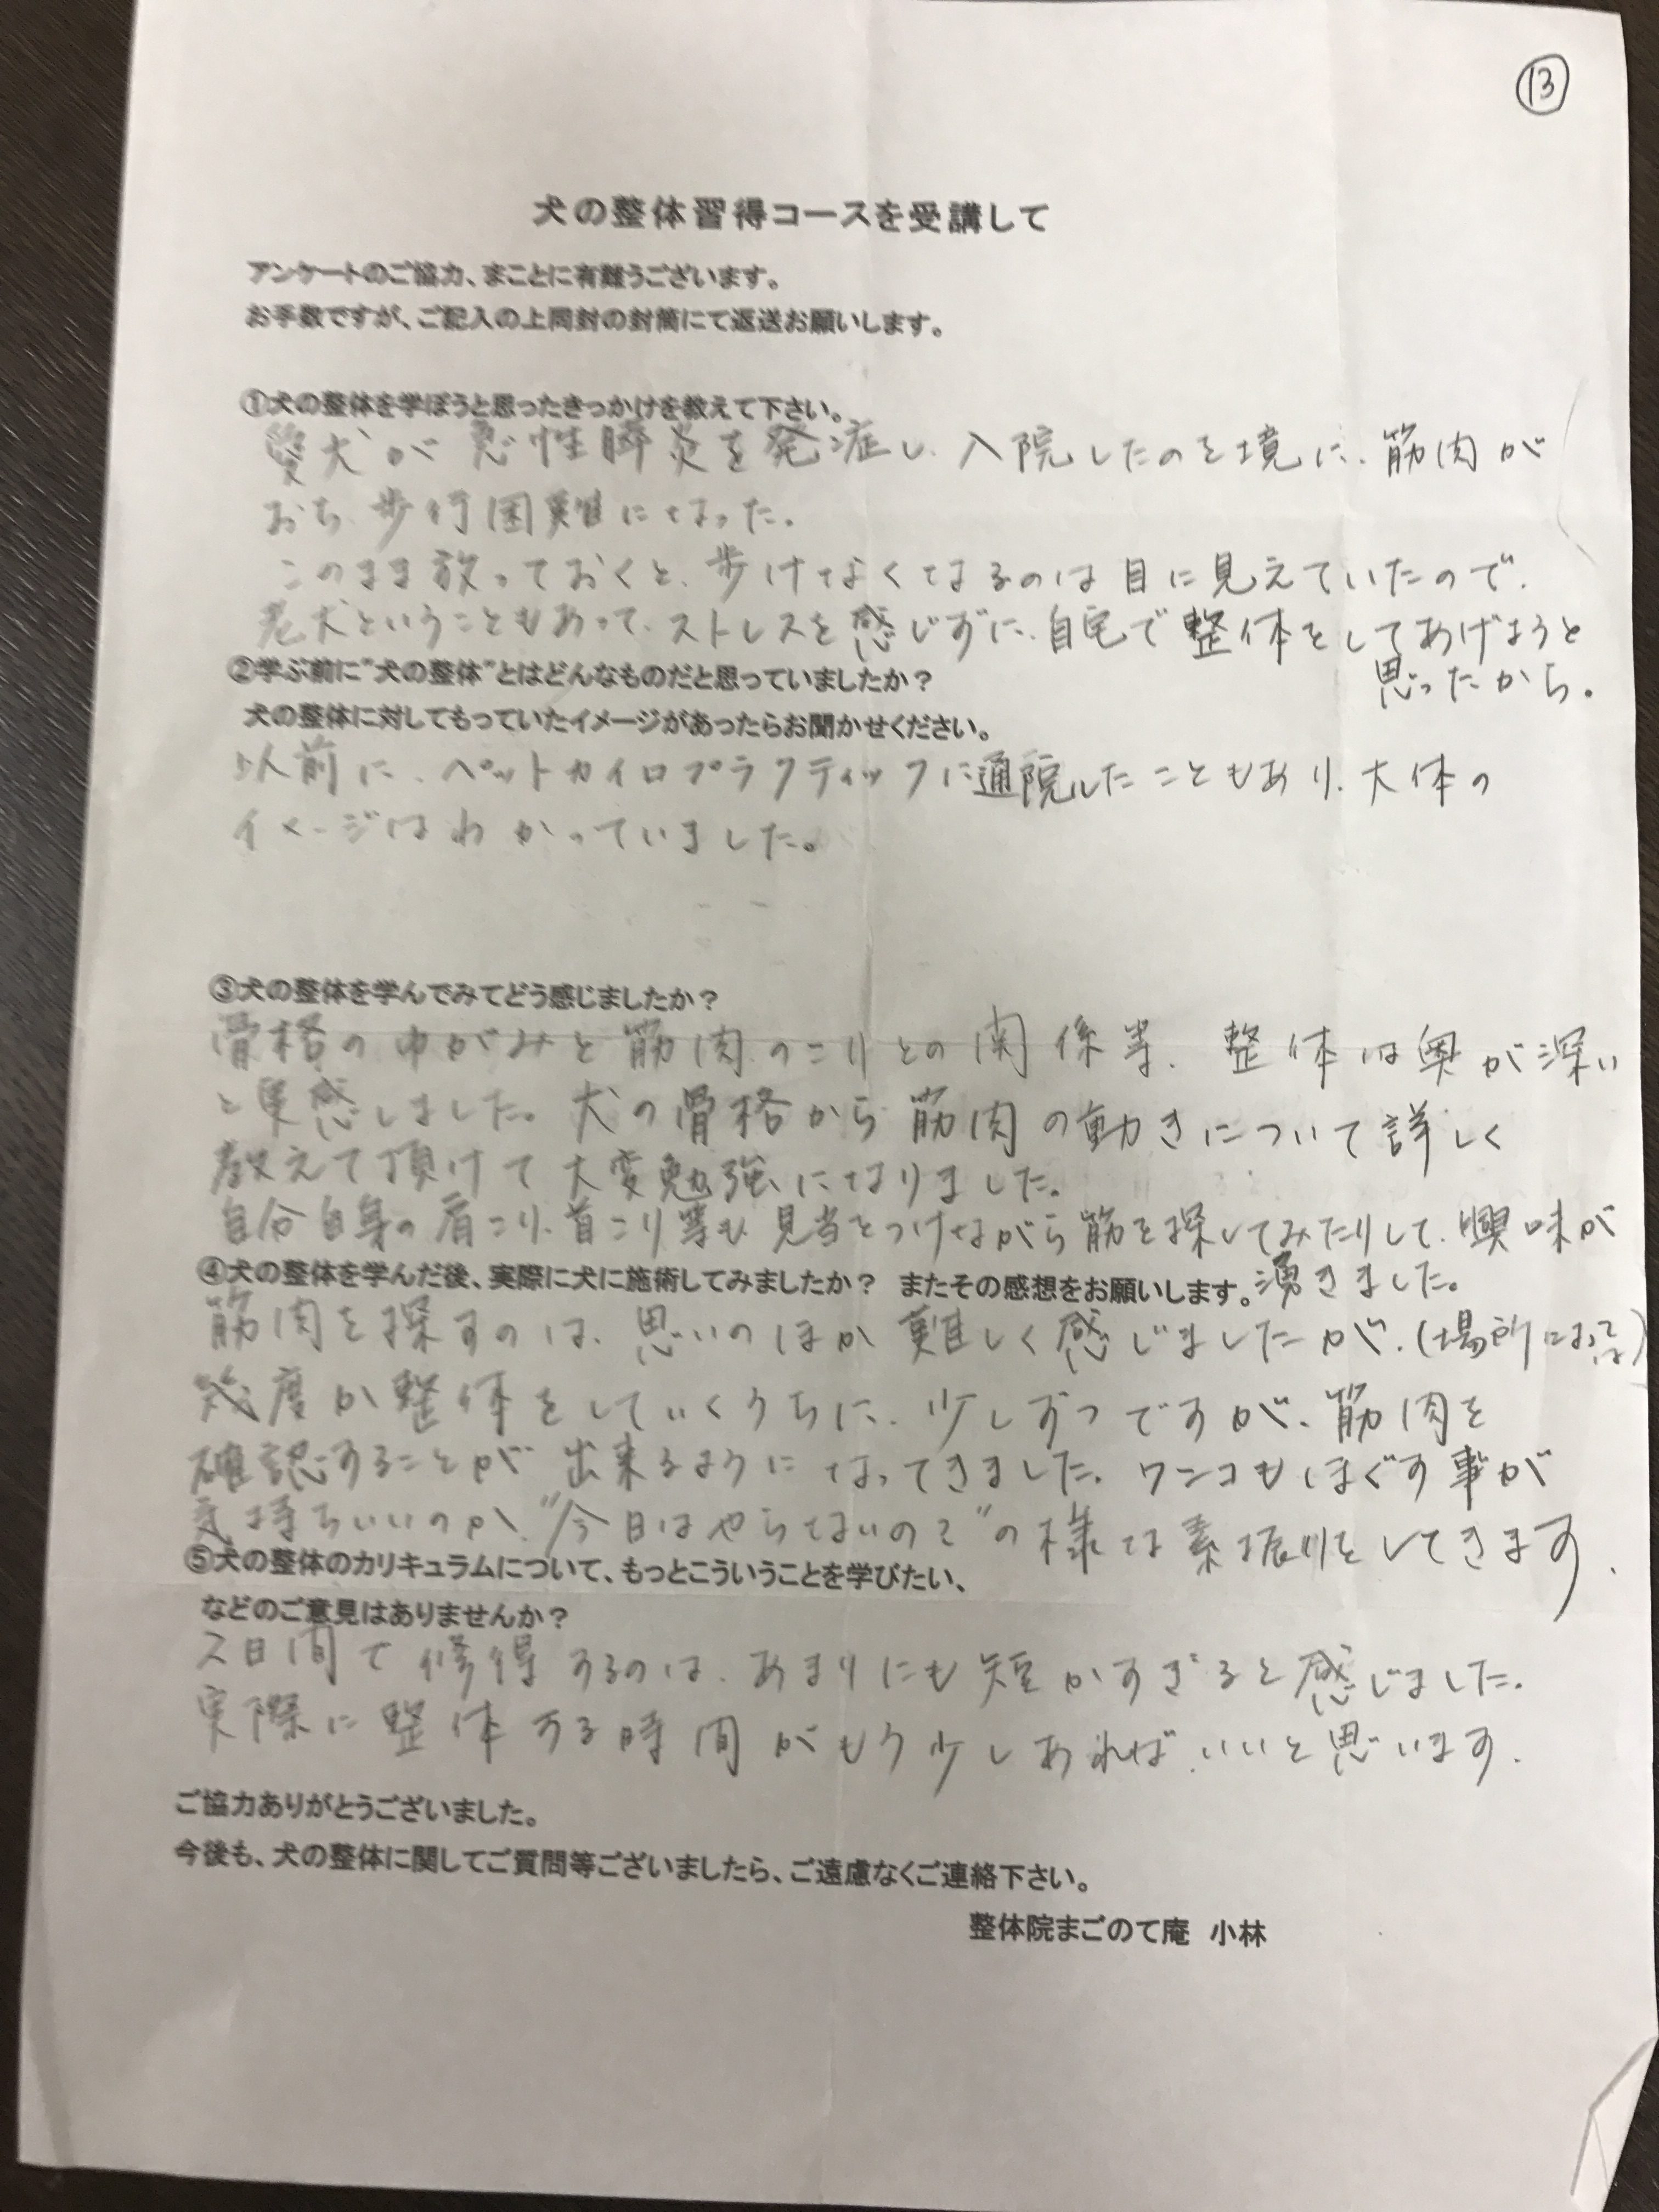 ⑬
犬の整体習得コースを受講して
アンケートのご協力、まことに有難うございます。
お手数ですが、ご記入の上同封の封筒にて返送お願いします。
①犬の整体を学ぼうと思ったきっかけを教えて下さい。
愛犬が急性膵炎を発症し、入院したのを境に、筋肉が
おち、歩行困難になった。
このまま放っておくと、歩けなくなるのは目に見えていたので、
老犬ということもあって、ストレスを感じずに、自宅で整体をしてあげようと
思ったから。
②学ぶ前に"犬の整体"とはどんなものだと思っていましたか？
犬の整体に対してもっていたイメージがあったらお聞かせください。
以前に、ペットカイロプラクティックに通院したこともあり、大体の
イメージはわかっていました。
③犬の整体を学んでみてどう感じましたか？
骨格のゆがみと筋肉のこりとの関係等、整体は奥が深い
と実感しました。犬の骨格から筋肉の動きについて詳しく
教えて頂けて大変勉強になりました。
自分自身の肩こり、首こり等も見当をつけながら筋を探してみたりして、興味が
湧きました。
④犬の整体を学んだ後、実際に犬に施術してみましたか？ またその感想をお願いします。
筋肉を探すのは、思いのほか難しく感じましたが、(場所によっては)
幾度か整体をしていくうちに、少しずつですが、筋肉を
確認することが出来るようになってきました。ワンコもほぐす事が
気持ちいいのか、"今日はやらないの？"の様な素振りをしてきます。
⑤犬の整体のカリキュラムについて、もっとこういうことを学びたい、
などのご意見はありませんか？
2日間で修得するのは、あまりにも短かすぎると感じました。
実際に整体する時間がもう少しあれば、いいと思います。
ご協力ありがとうございました。
今後も、犬の整体に関してご質問等ございましたら、ご遠慮なくご連絡下さい。
整体院まごのて庵 小林